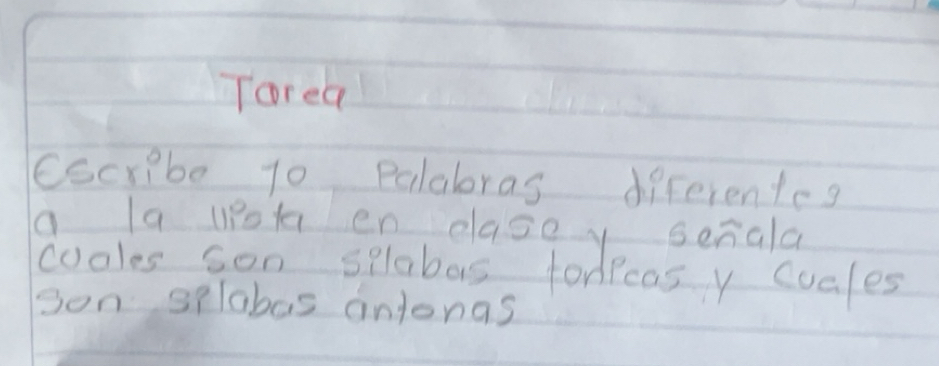 Tarea
Escribe 10 Palabras diferentes
a la vista en clase y señala
cuales son silabas tonicas y cuales
son silabas antonas